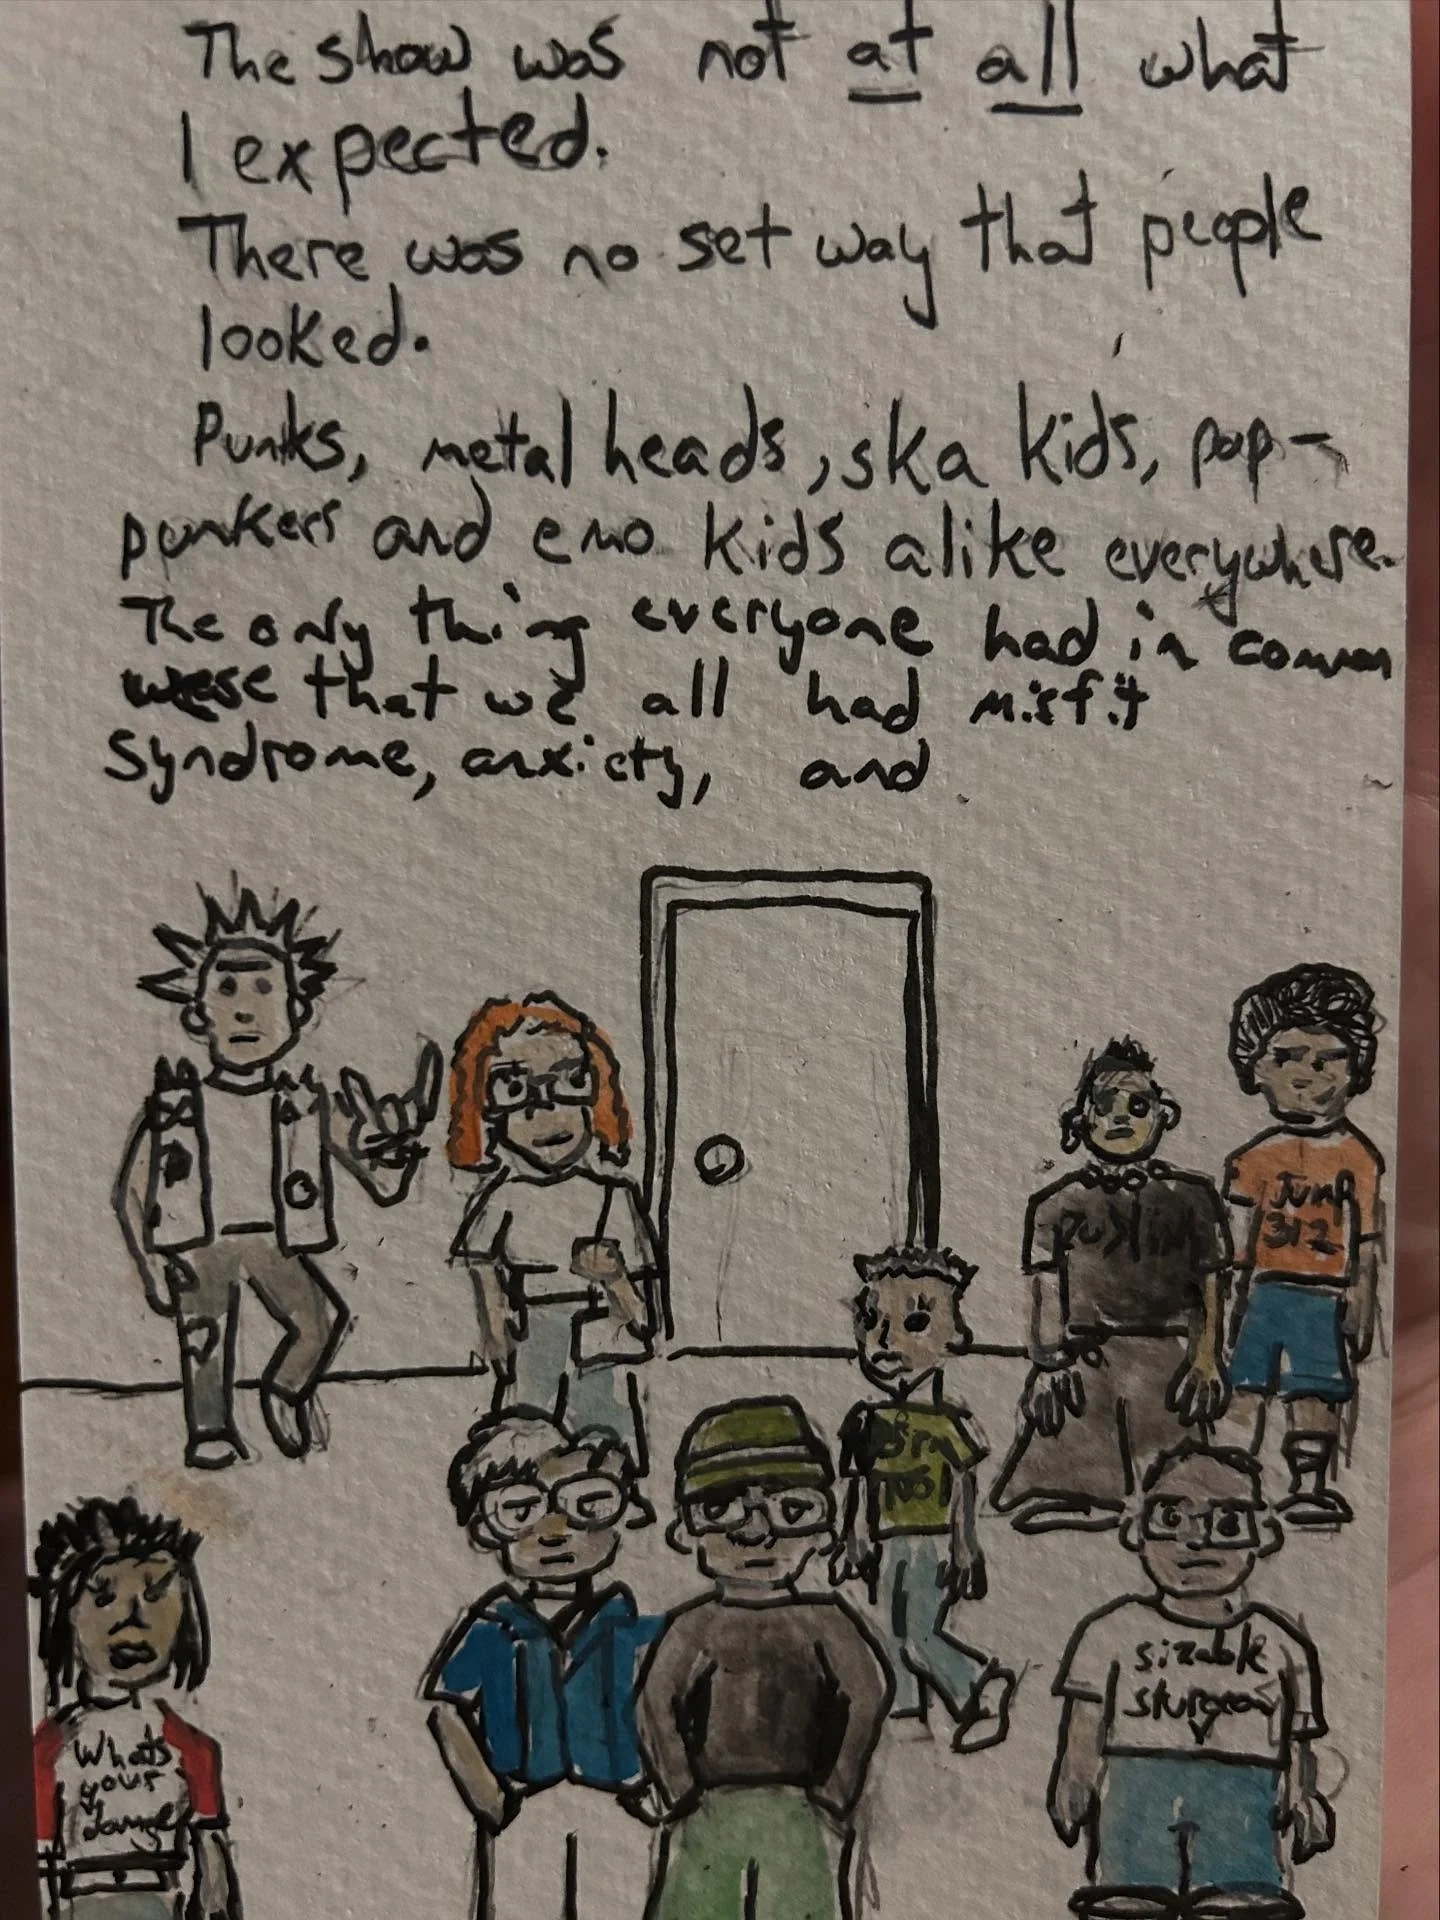 The show was not at all what
I expected.
There was no set way that people
looked.
Punks, metal heads, ska kids, pop-
punkers and emo kids alike everywhere.
The only thing everyone had in common
were that we all had misfit
syndrome, anxiety, and
Jump
312
sizable
sturgeon
What's
your
damage